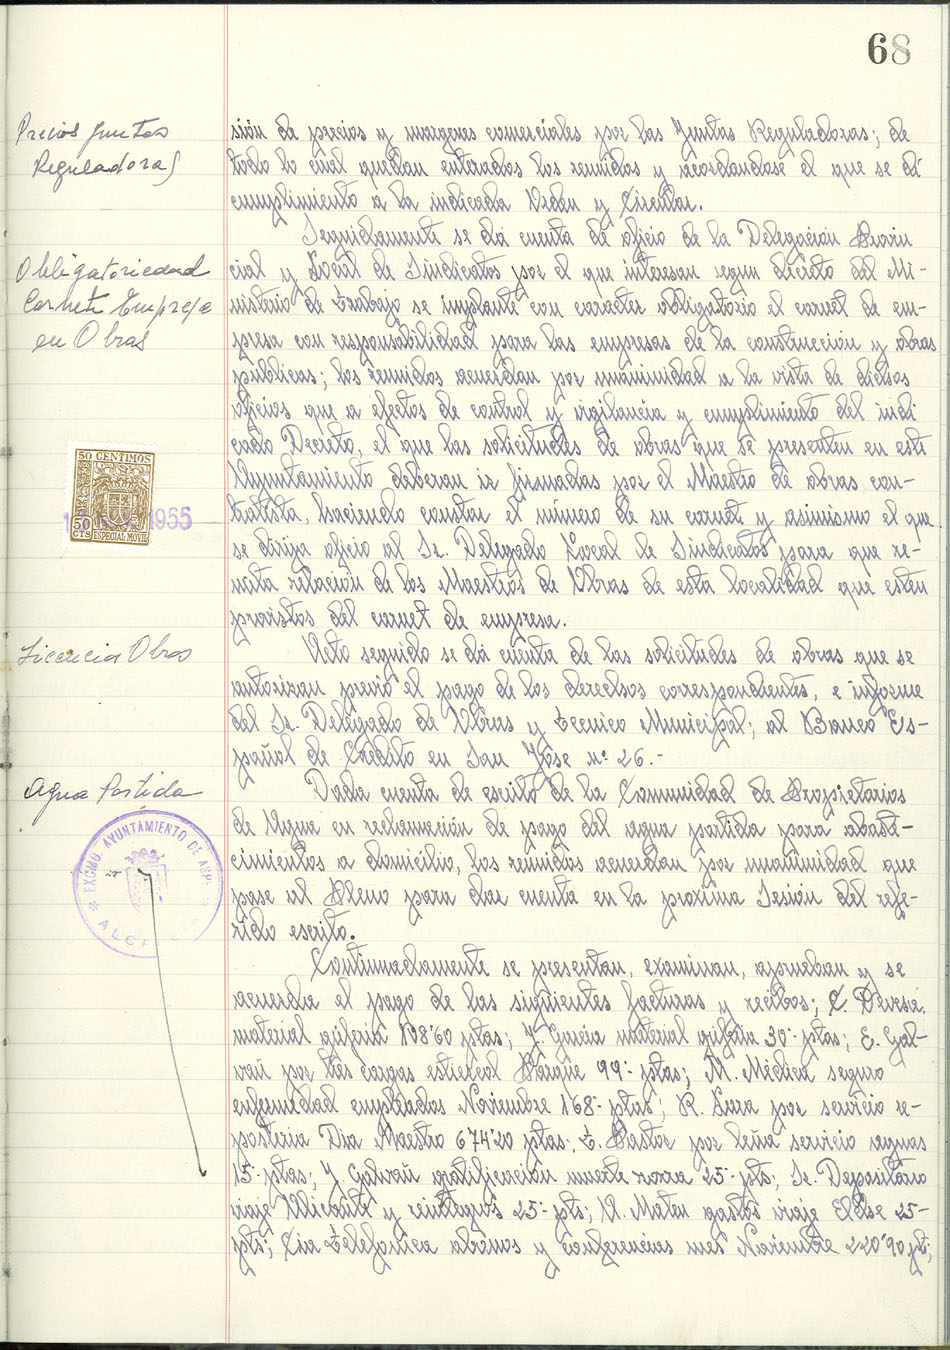 68
Precios Juntas
Reguladoras
sión de precios y margenes comerciales por las Juntas Reguladoras; de
todo lo cual quedan enterados los reunidos y acordandose el que se dé
cumplimiento a la indicada Orden y Circular.
Obligatoriedad
Carnet Empresa
en Obras
Seguidamente se dá cuenta de oficio de la Delegación Provin
cial y Local de Sindicatos por el que interesan segun decreto del Mi-
nisterio de Trabajo se implante con caracter obligatorio el carnet de em-
presa con responsabilidad para las empresas de la construcción y obras
públicas; los reunidos acuerdan por unanimidad a la vista de dichos
oficios que a efectos de control y vigilancia y cumplimiento del indi
cado Decreto, el que las solicitudes de obras que se presenten en este
Ayuntamiento deberan ir firmadas por el Maestro de obras con-
tratista, haciendo constar el número de su carnet y asimismo el que
se dirija oficio al Sr. Delegado Local de Sindicatos para que re-
mita relación de los Maestros de Obras de esta localidad que esten
provistos del carnet de empresa.
50 CENTIMOS
50 CTS ESPECIAL MOVIL
1955
Licencia Obras
Acto seguido se dá cuenta de las solicitudes de obras que se
autorizan previo el pago de los derechos correspondientes, e informe
del Sr. Delegado de Obras y Tecnico Municipal; al Banco Es-
pañol de Crédito en San José nº 26.-
Agua Partida
Dada cuenta de escrito de la Comunidad de Propietarios
de Agua en reclamación de pago del agua partida para abaste-
cimientos a domicilio, los reunidos acuerdan por unanimidad que
pase al Pleno para dar cuenta en la proxima Sesión del refe-
rido escrito.
EXCMO. AYUNTAMIENTO DE ASPE
Continuadamente se presentan, examinan, aprueban y se
acuerda el pago de las siguientes facturas y recibos; C. Devesa
material 108'60 ptas; J. García material 30'- ptas; E. Gal-
vañ por tres cargas estiercol Parque 99'- ptas; M. Médica seguro
enfermedad empleados Noviembre 168'- ptas; R. Lura por servicio re-
posteria Dia Maestro 674'20 ptas; T. Pastor por leña servicio aguas
15'- ptas; J. Galvañ gratificación muerte zorra 25'- pts; Sr. Depositario
viaje Alicante y reintegros 25'- pts; A. Mateu gastos viaje Elche 25-
pts; Cia Telefonica abonos y conferencias mes Noviembre 220'90 pts;